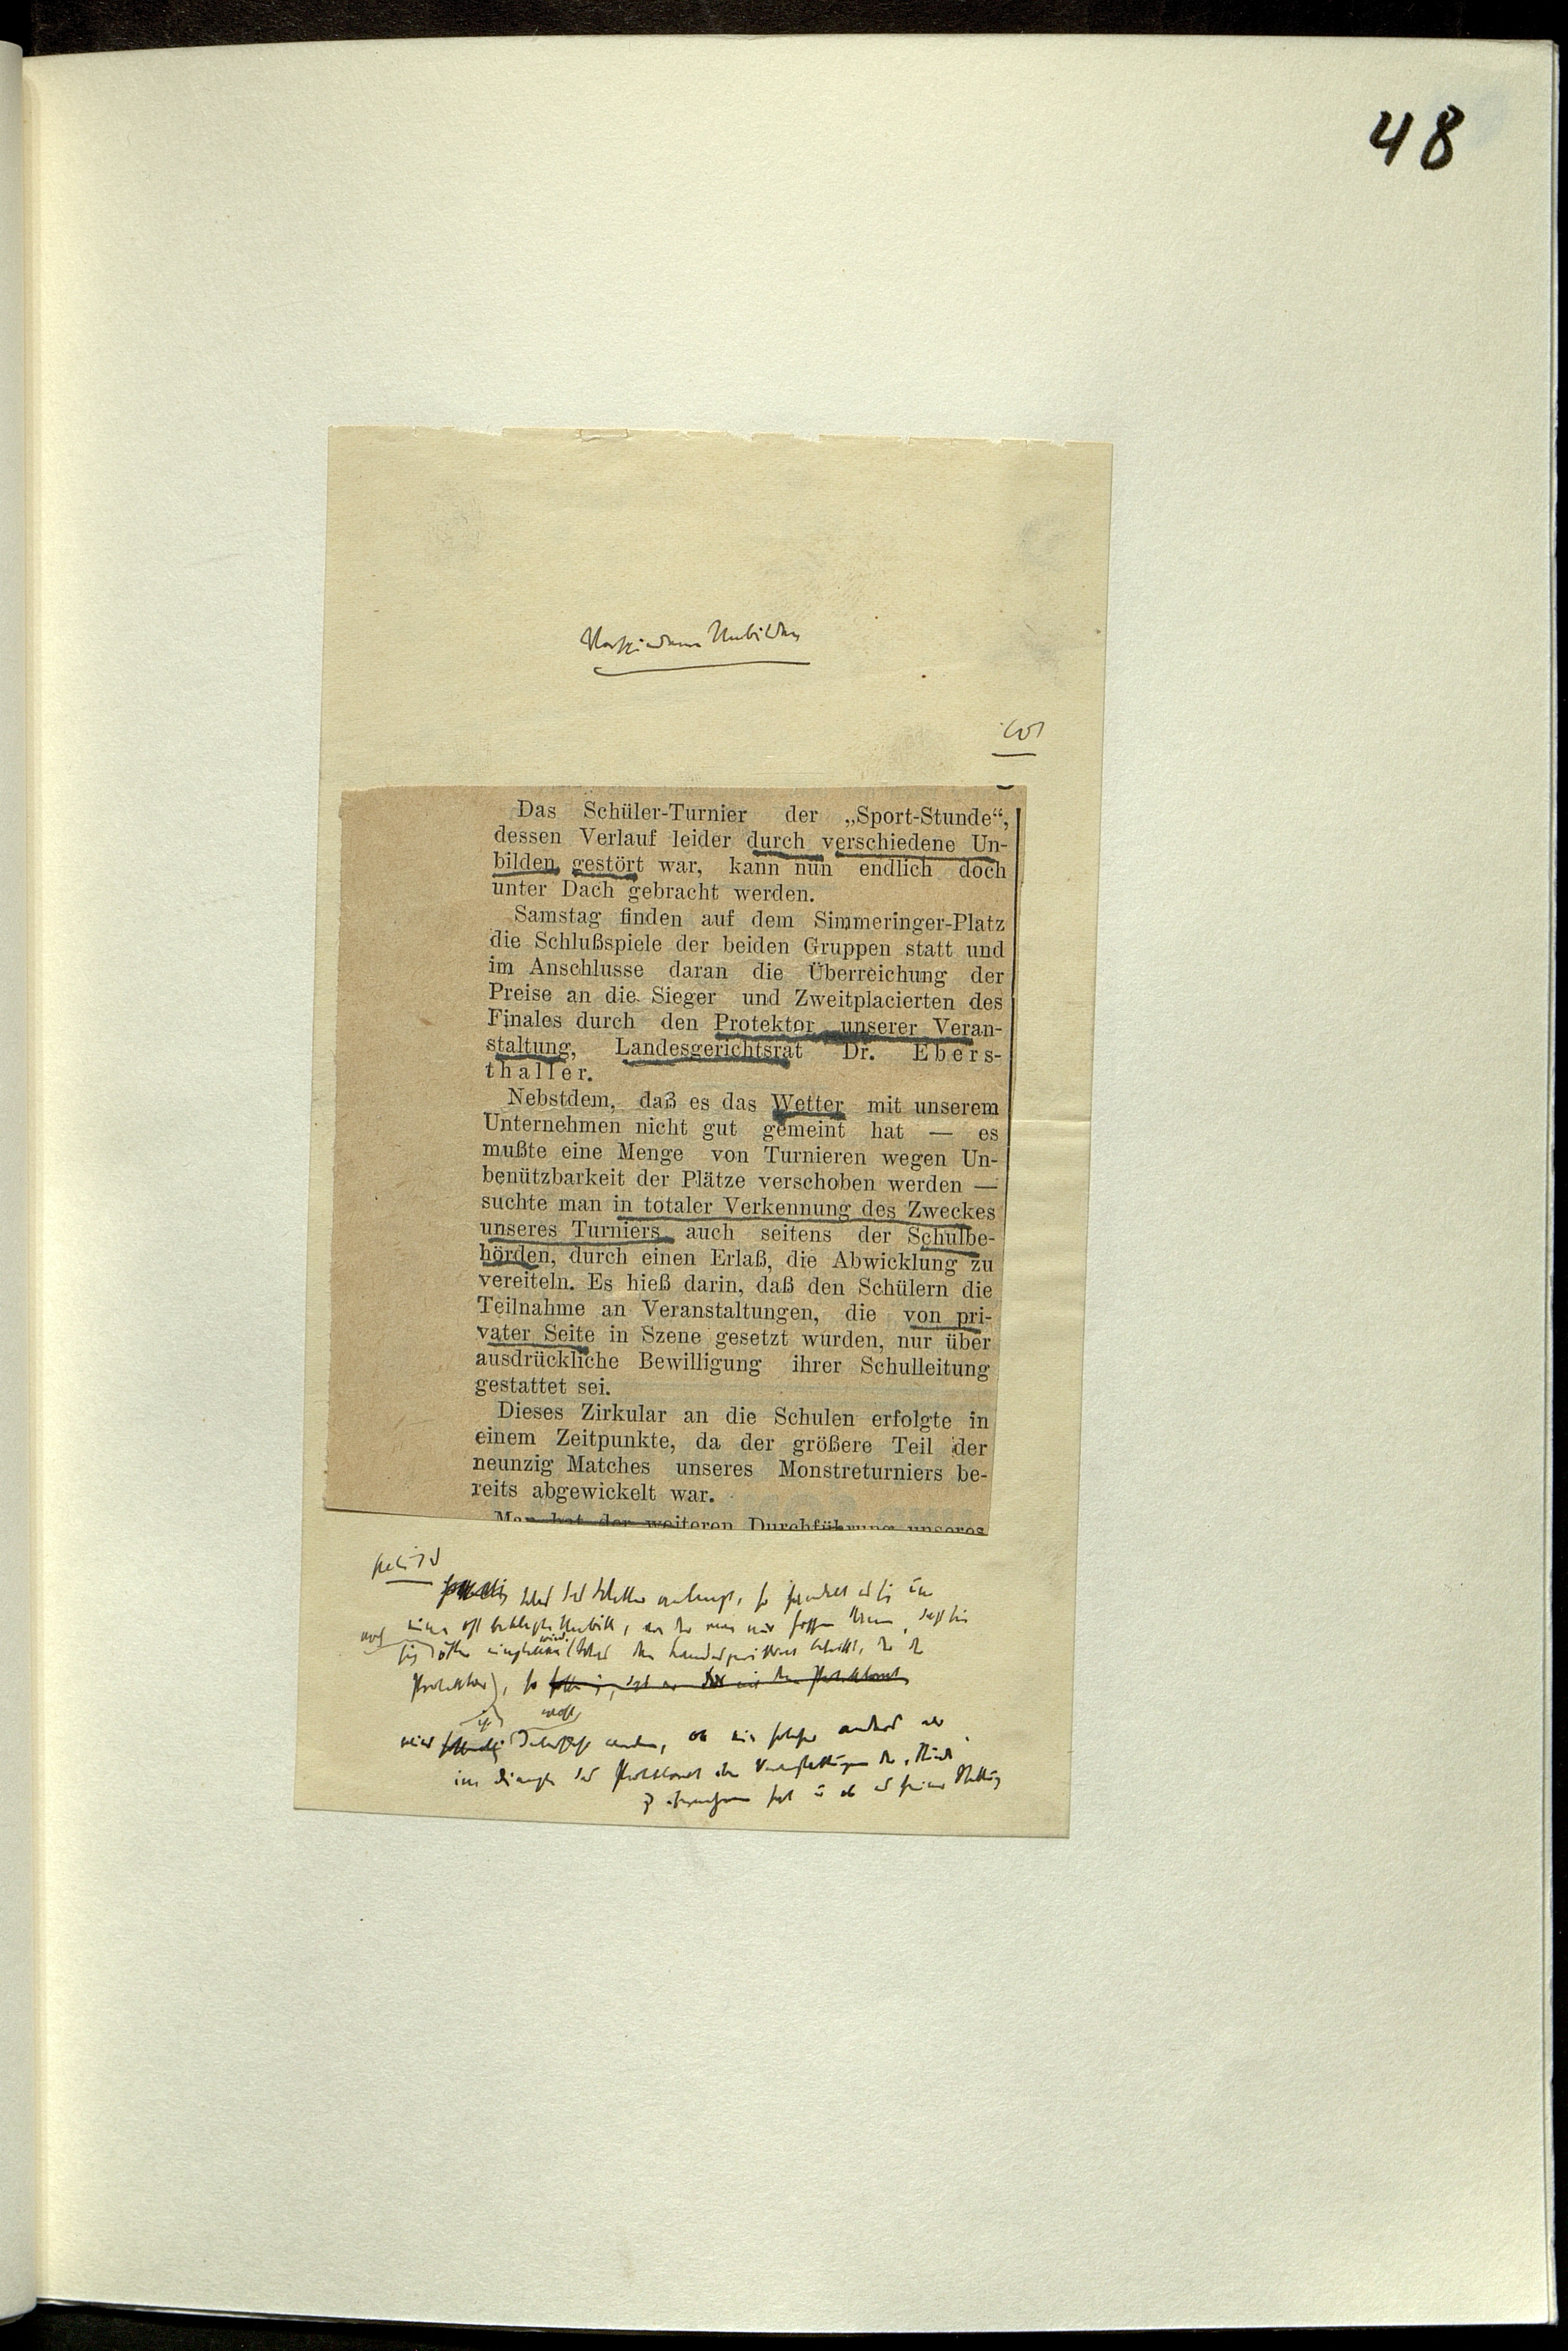 48
Verschiedene Unbilden
Das Schüler-Turnier der „Sport-Stunde“,
dessen Verlauf leider durch verschiedene Un-
bilden gestört war, kann nun endlich doch
unter Dach gebracht werden.
Samstag finden auf dem Simmeringer-Platz
die Schlußspiele der beiden Gruppen statt und
im Anschlusse daran die Überreichung der
Preise an die Sieger und Zweitplacierten des
Finales durch den Protektor unserer Veran-
staltung, Landesgerichtsrat Dr. Ebers-
thaller.
Nebstdem, daß es das Wetter mit unserem
Unternehmen nicht gut gemeint hat — es
mußte eine Menge von Turnieren wegen Un-
benützbarkeit der Plätze verschoben werden —
suchte man in totaler Verkennung des Zweckes
unseres Turniers auch seitens der Schulbe-
hörden, durch einen Erlaß, die Abwicklung zu
vereiteln. Es hieß darin, daß den Schülern die
Teilnahme an Veranstaltungen, die von pri-
vater Seite in Szene gesetzt wurden, nur über
ausdrückliche Bewilligung ihrer Schulleitung
gestattet sei.
Dieses Zirkular an die Schulen erfolgte in
einem Zeitpunkte, da der größere Teil der
neunzig Matches unseres Monstreturniers be-
reits abgewickelt war.
Man hat der weiteren Durchführung unseres
Was das Wetter anlangt, so handelt es sich um
eine oft beklagte Unbill, von der man nur hoffen kann, daß sie
Protektor), so